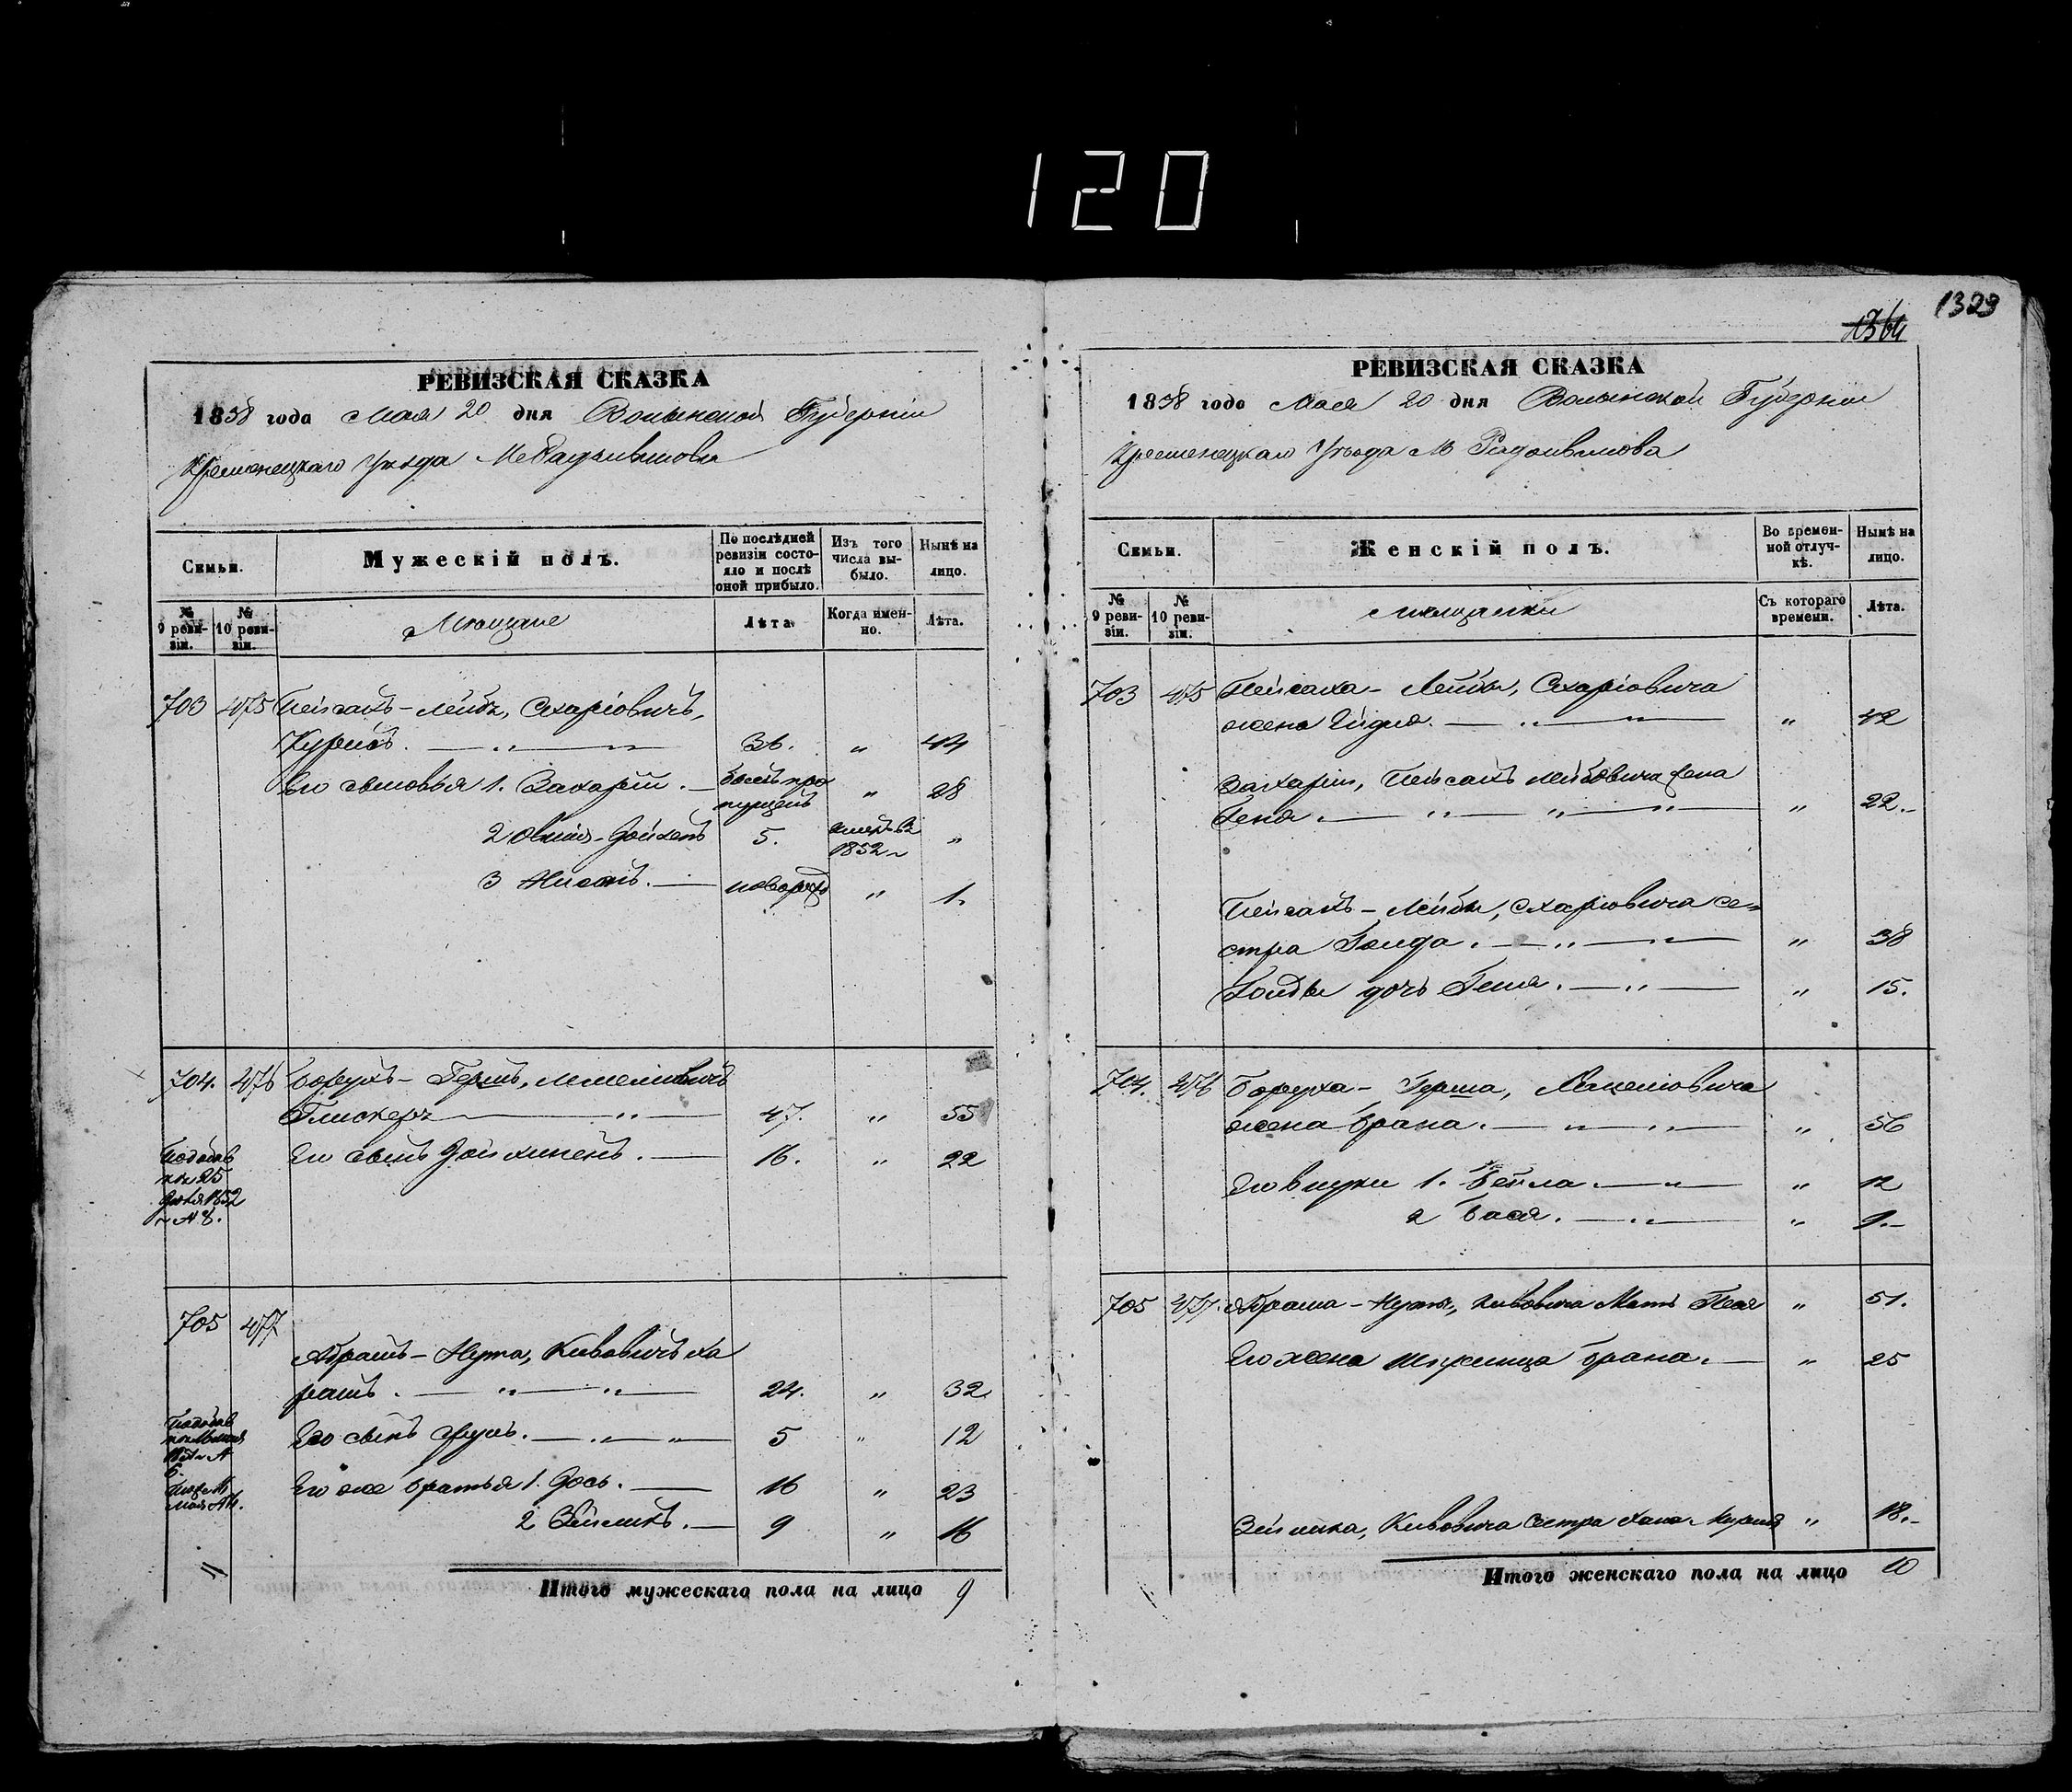 120
1329
1364
РЕВИЗСКАЯ СКАЗКА
1858 года Мая 20 дня Волынской Губерніи
Кременецкаго Уезда М Радзивилова
Семьи.
Мужескій полъ.
По послѣдней ревизіи состояло и послѣ оной прибыло.
Изъ того числа выбыло.
Нынѣ на лицо.
№ 9 ревизіи.
№ 10 ревизіи.
Мещане
Лѣта
Когда именно.
Лѣта.
703 475 Пейсахъ-Лейбъ, Схаріовичъ,
36. " 44
Его сыновья 1. Захарій. — былъ пропущенъ " 28
2 5. умеръ въ 1852 "
3 Нисанъ. — новорожд " 1.
704. 476 Борухъ-Гершъ,
Глискеръ — " — 47. " 55
Его сынъ — 16. " 22
25
1852
705 477
Абрамъ-Нута, Кивовичъ Ха
рашъ. — " — " — 24. " 32
Его сынъ — " — " 5 " 12
Его же братья 1. Іось. — 16 " 23
2 Зейликъ. — 9 " 16
Итого мужескаго пола на лицо 9
РЕВИЗСКАЯ СКАЗКА
1858 года Мая 20 дня Волынской Губерніи
Кременецкаго Уезда М Радзивилова
Семьи.
Женскій полъ.
Во временной отлучкѣ.
Нынѣ на лицо.
№ 9 ревизіи.
№ 10 ревизіи.
Мещанки
Съ котораго времени.
Лѣта.
703 475 Пейсаха-Лейбы, Схаріовича
жена — " — " 42
Захарія, Пейсахъ Лейбовича жена
Гена. — " — " — " — " 22.-
Пейсахъ-Лейбы, Схаріовича се=
стра Голда. — " — " 38
Голды дочь Геня. — " — " 15.
704. 476 Боруха-Герша,
жена Брана. — " — " — " 56
Его внуки 1. Бейла — " — " 12
2 Бася. — " — " 9.-
705 477. Абрама-Нуты, Кивовича Мать Песя " 51.
Его жена Брана. — " 25
Зейлика, Кивовича Сестра Хана " 18.-
Итого женскаго пола на лицо 10